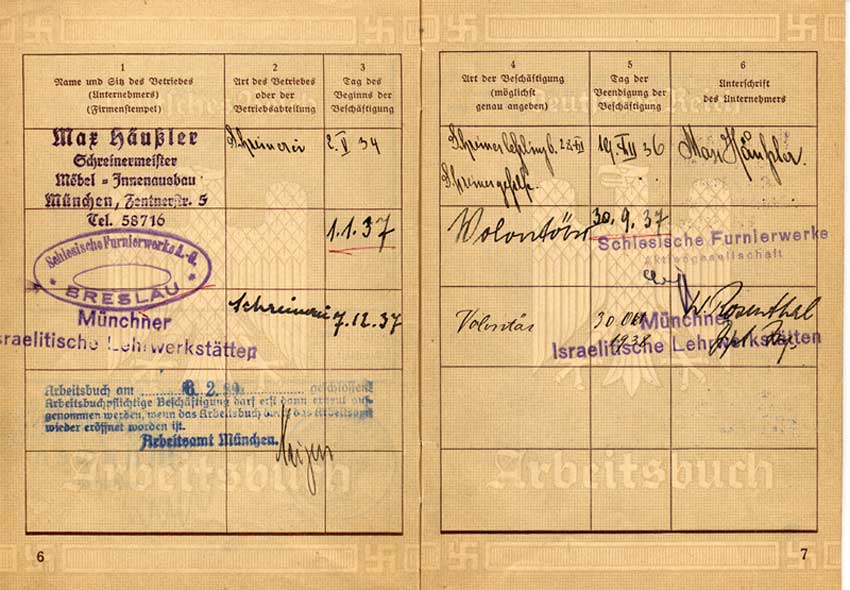 1
Name und Sitz des Betriebes
(Unternehmers)
(Firmenstempel)
2
Art des Betriebes
oder der
Betriebsabteilung
3
Tag des
Beginns der
Beschäftigung
Max Häußler
Schreinermeister
Möbel = Innenausbau
München, Zentnerstr. 5
Tel. 58716
Schreinerei
2. V 34
Schlesische Furnierwerke A.-G.
BRESLAU
1.1.37
Münchner
Israelitische Lehrwerkstätten
Schreinerei
7.12.37
Arbeitsbuch am 6.2.39 geschlossen!
Arbeitsbuchpflichtige Beschäftigung darf erst dann erneut auf-
genommen werden, wenn das Arbeitsbuch durch das Arbeitsamt
wieder eröffnet worden ist.
Arbeitsamt München.
Arbeitsbuch
6
4
Art der Beschäftigung
(möglichst
genau angeben)
5
Tag der
Beendigung der
Beschäftigung
6
Unterschrift
des Unternehmers
Deutsches Reich
Schreinerlehrling
Schreinergeselle.
19. XII 36
Max Häußler.
Volontär
30.9.37
Schlesische Furnierwerke
Aktiengesellschaft
Volontär
30 Okt
1938
Münchner
Israelitische Lehrwerkstätten
Rosenthal
Arbeitsbuch
7